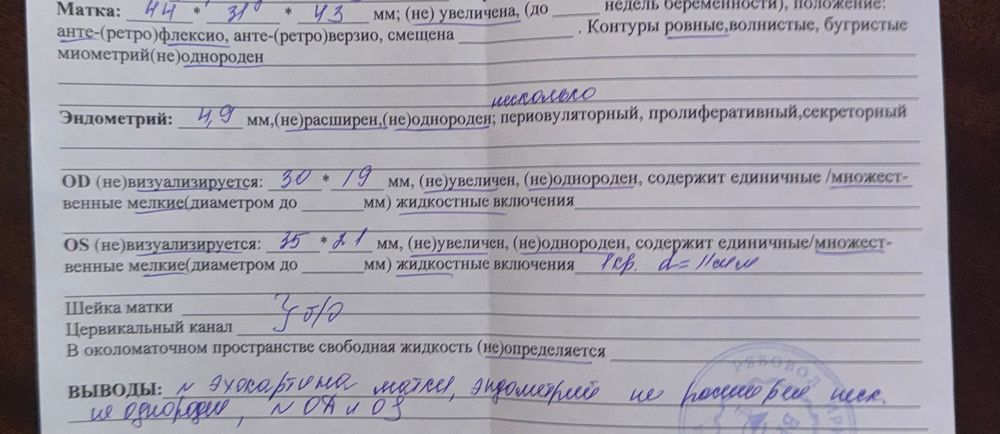 Матка: 44 * 31 * 43 мм; (не) увеличена, (до ____ недель беременности), положение:
анте-(ретро)флексио, анте-(ретро)верзио, смещена ____________ . Контуры ровные,волнистые, бугристые
миометрий(не)однороден
несколько
Эндометрий: 4,9 мм,(не)расширен,(не)однороден; периовуляторный, пролиферативный,секреторный
OD (не)визуализируется: 30 * 19 мм, (не)увеличен, (не)однороден, содержит единичные /множест-
венные мелкие(диаметром до ______мм) жидкостные включения
OS (не)визуализируется: 35 * 21 мм, (не)увеличен, (не)однороден, содержит единичные/множест-
венные мелкие(диаметром до ______ мм) жидкостные включения 1кр. d=11мм
Шейка матки
Цервикальный канал } б/о
В околоматочном пространстве свободная жидкость (не)определяется
ВЫВОДЫ: N эхокартина матки, эндометрий не расширен неск.
неоднороден, N OD и OS
РЯБОВОЛ